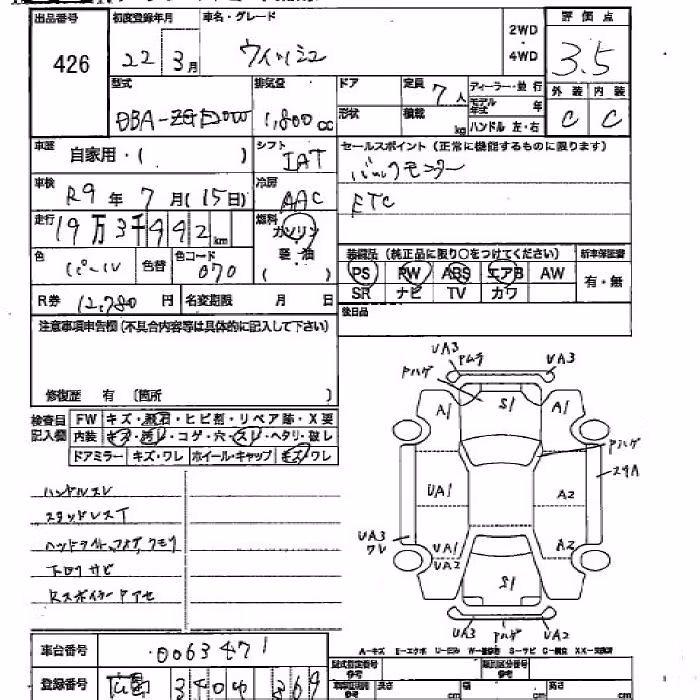 出品番号 426
初度登録年月 22 3月
車名・グレード ウィッシュ
2WD・4WD
評価点 3.5
外装 C 内装 C
型式 DBA-
排気量 1,800cc
ドア
形状
定員 7人
積載 kg
ディーラー・並行
モデル年式 年
ハンドル 左・右
車歴 自家用・( )
シフト IAT
セールスポイント (正常に機能するものに限ります)
バックモニター
ETC
車検 R9年 7月(15日)
冷房 AAC
走行 19万3千442km
燃料 ガソリン・軽・油 ( )
色 パール 色替
色コード 070
装備品 (純正品に限り○をつけてください)
PS PW ABS エアB AW
SR ナビ TV カワ
新車保証書 有・無
R券 12,780円
名変期限 月 日
後日品
注意事項申告欄(不具合内容等は具体的に記入して下さい)
修復歴 有 〔箇所 〕
検査員記入欄
FW キズ・飛石・ヒビ割・リペア跡・X要
内装 キズ・汚レ・コゲ・穴・スレ・ヘタリ・破レ
ドアミラー キズ・ワレ ホイール・キャップ キズ/ワレ
ハンドルスレ
スタッドレスT
ヘッドライト、フォグ、クモリ
下回りサビ
Rスポイラーアセ
UA3 Pムラ UA3
Pハゲ
A1 S1 A1
Pハゲ
スリA
UA1 A2
UA3 ワレ
UA1 A2
UA2
S1
UA3 Pハゲ UA2
A=キズ E=エクボ U=ヒズミ W=補修跡 S=サビ C=腐食 XX=交換済
車台番号 0063471
型式指定番号 参考
類別区分番号 参考
登録番号 広島 3404 369
長さ cm 幅 cm 高さ cm